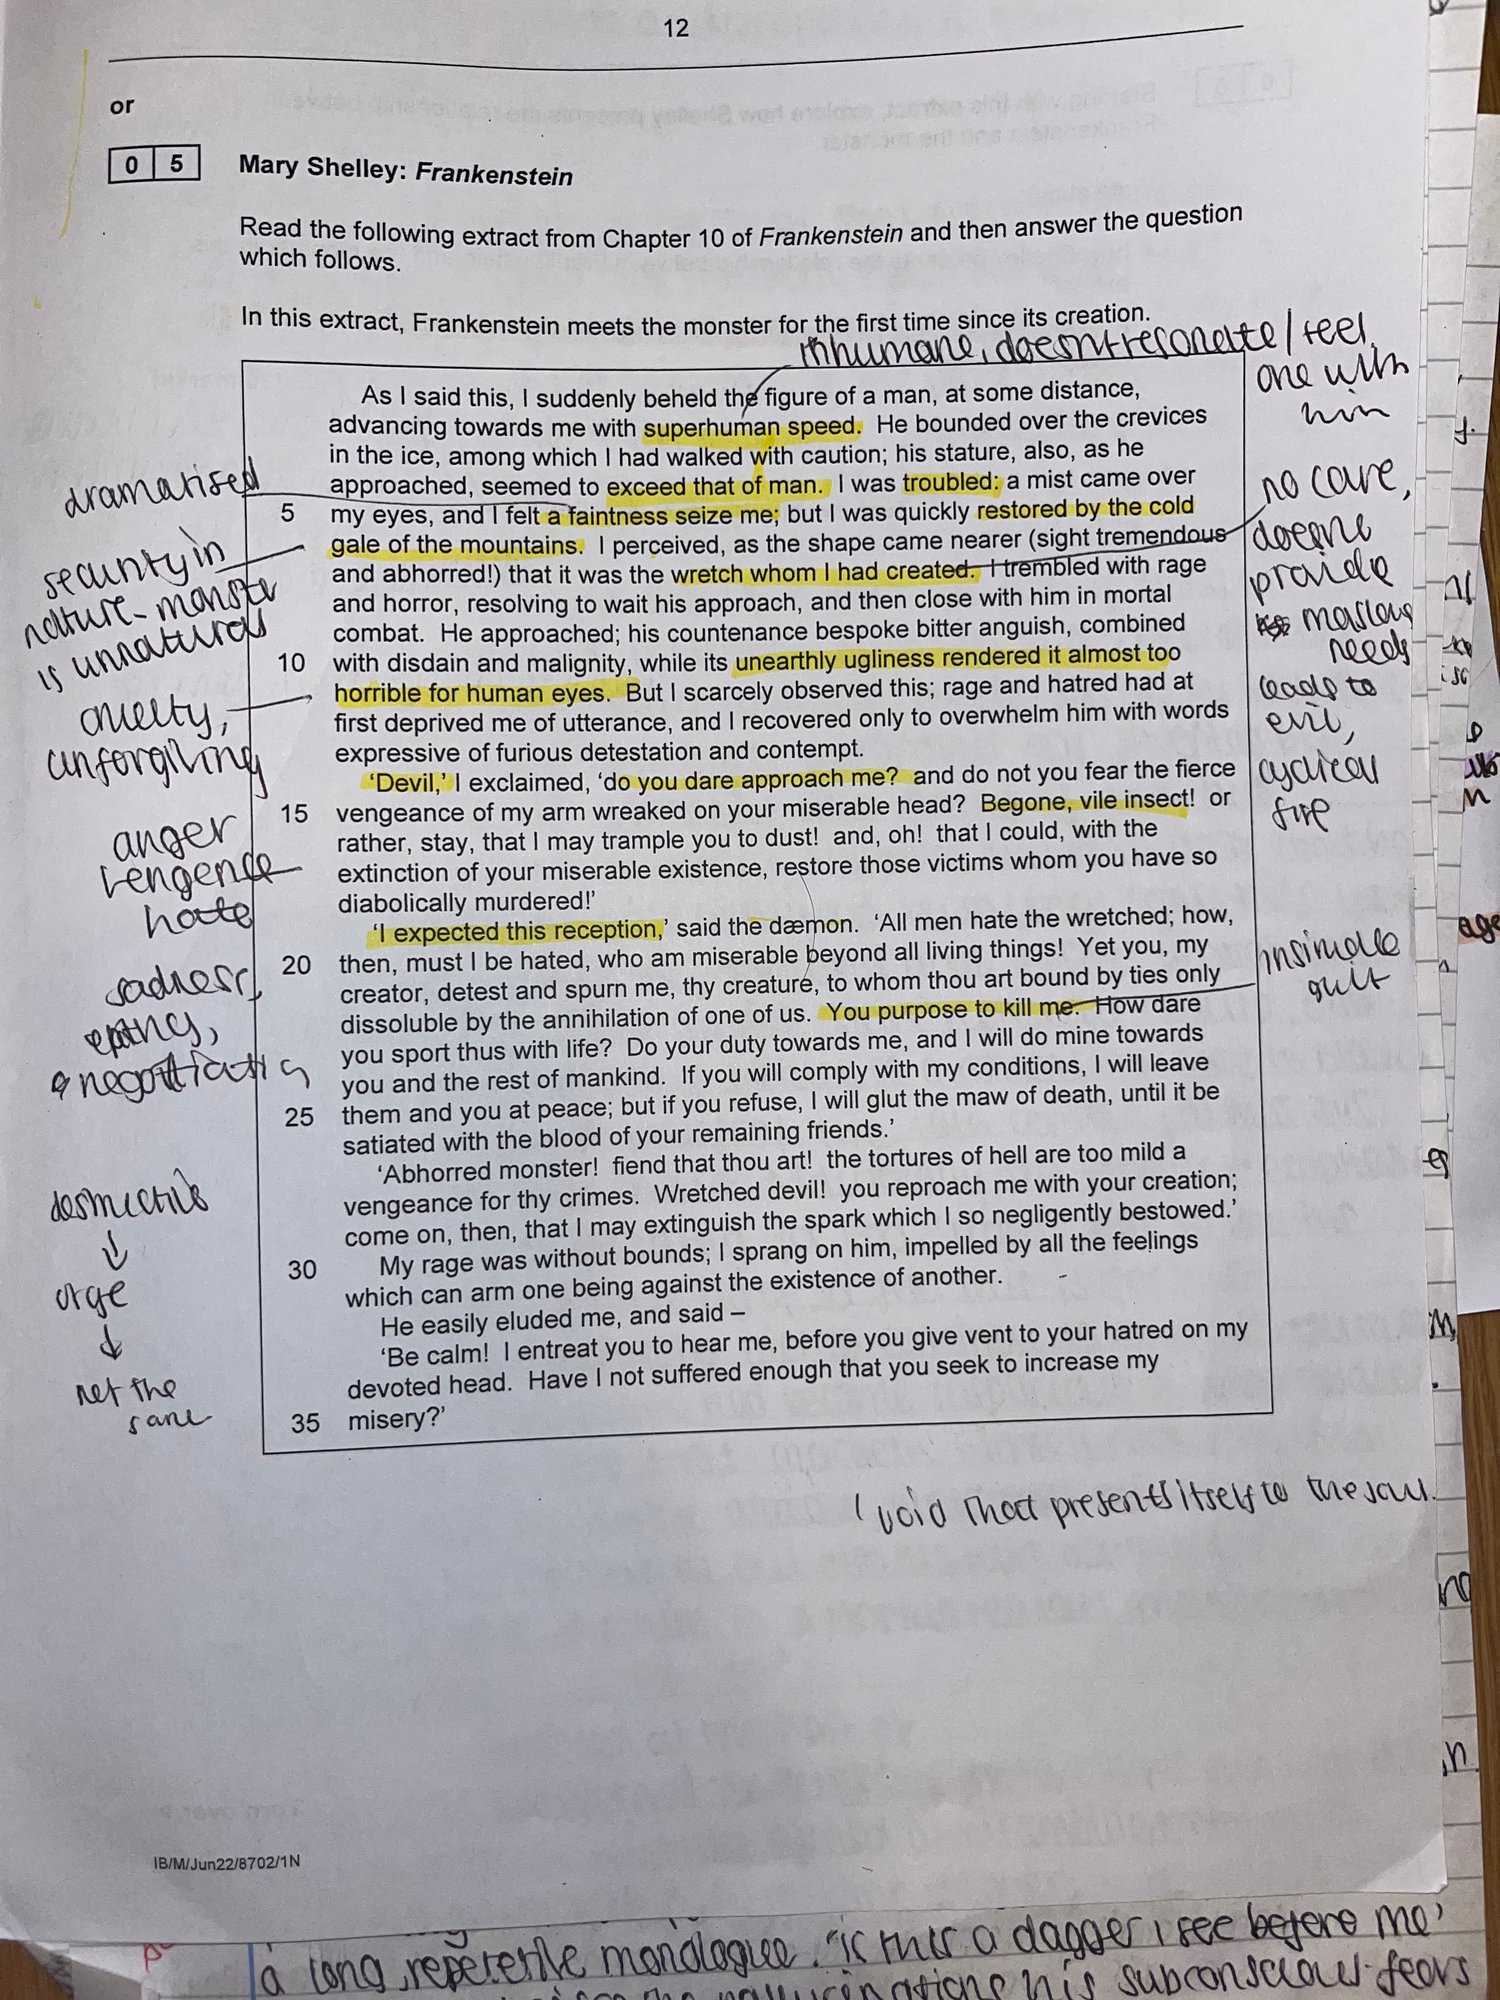 12
or
0 5 Mary Shelley: Frankenstein
Read the following extract from Chapter 10 of Frankenstein and then answer the question
which follows.
In this extract, Frankenstein meets the monster for the first time since its creation.
inhumane, doesn't resonate / feel
one with
him
As I said this, I suddenly beheld the figure of a man, at some distance,
advancing towards me with superhuman speed. He bounded over the crevices
in the ice, among which I had walked with caution; his stature, also, as he
approached, seemed to exceed that of man. I was troubled: a mist came over
5 my eyes, and I felt a faintness seize me; but I was quickly restored by the cold
gale of the mountains. I perceived, as the shape came nearer (sight tremendous
and abhorred!) that it was the wretch whom I had created. I trembled with rage
and horror, resolving to wait his approach, and then close with him in mortal
combat. He approached; his countenance bespoke bitter anguish, combined
10 with disdain and malignity, while its unearthly ugliness rendered it almost too
horrible for human eyes. But I scarcely observed this; rage and hatred had at
first deprived me of utterance, and I recovered only to overwhelm him with words
expressive of furious detestation and contempt.
'Devil,' I exclaimed, 'do you dare approach me? and do not you fear the fierce
15 vengeance of my arm wreaked on your miserable head? Begone, vile insect! or
rather, stay, that I may trample you to dust! and, oh! that I could, with the
extinction of your miserable existence, restore those victims whom you have so
diabolically murdered!'
'I expected this reception,' said the dæmon. 'All men hate the wretched; how,
20 then, must I be hated, who am miserable beyond all living things! Yet you, my
creator, detest and spurn me, thy creature, to whom thou art bound by ties only
dissoluble by the annihilation of one of us. You purpose to kill me. How dare
you sport thus with life? Do your duty towards me, and I will do mine towards
you and the rest of mankind. If you will comply with my conditions, I will leave
25 them and you at peace; but if you refuse, I will glut the maw of death, until it be
satiated with the blood of your remaining friends.'
'Abhorred monster! fiend that thou art! the tortures of hell are too mild a
vengeance for thy crimes. Wretched devil! you reproach me with your creation;
come on, then, that I may extinguish the spark which I so negligently bestowed.'
30 My rage was without bounds; I sprang on him, impelled by all the feelings
which can arm one being against the existence of another.
He easily eluded me, and said –
'Be calm! I entreat you to hear me, before you give vent to your hatred on my
devoted head. Have I not suffered enough that you seek to increase my
35 misery?'
dramatised
security in
nature - monster
is unnatural
cruelty,
unforgiving
anger
vengence
hate
sadness,
negotiating
urge
not the
same
no care,
doesnt
provide
maslows
needs
leads to
evil,
cyclical
guilt
void that presents itself to the soul.
IB/M/Jun22/8702/1N
a long, monologue. "is this a dagger i see before me'
his subconscious fears